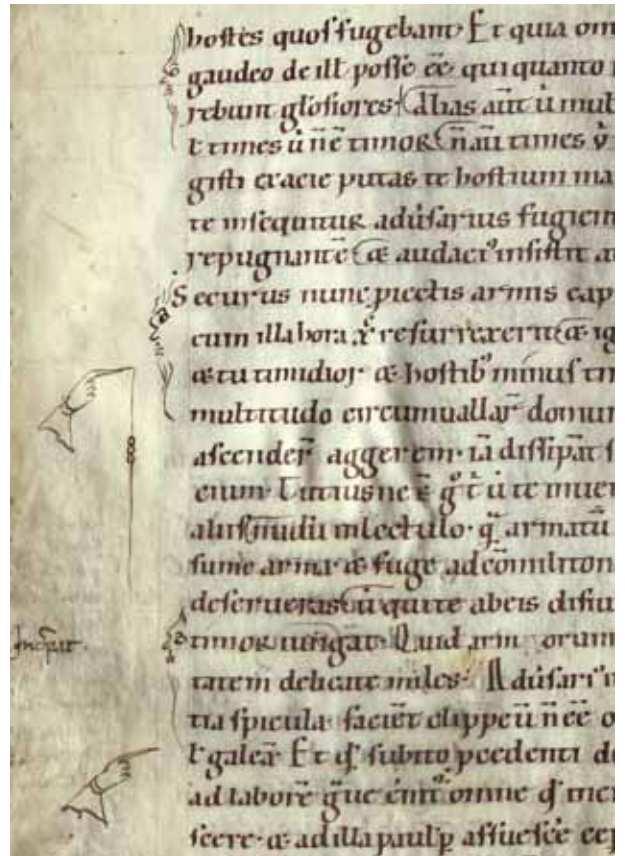 hostes quos fugebant· Et quia om
gaudeo de ill' posse ēē qui quanto
rebunt gl'osiores· Alias aūt ū mul
t times ū n̄ ē timor n̄ aū times v̊
gisti eacie putas te hostium ma
te insequitur adūsarius fugiem
repugnantē & audaci' insistit a
Securus nunc piectis armis cap
cum illabora xp̄ resurrexerit & ig
& tu timidior & hostib' minus tm
multitudo circumuallar̄ domum
ascender̄ aggerem· iā dissipāt s
enim·
alius nudū in lectulo· q̄ armatū
sume arma & fuge ad cōmiliton
deserueras ū qui te abeis disiu
timor iungat· Quid arm orum
tatem delicate miles· Adūsari'
tia spicula· faciēt clippeū n̄ ēē o
t galeā Et q̄ subito pcedenti de
ad laborē gͣue omne q̄ inc
scere· & ad illa paulp̄ assuescē cep